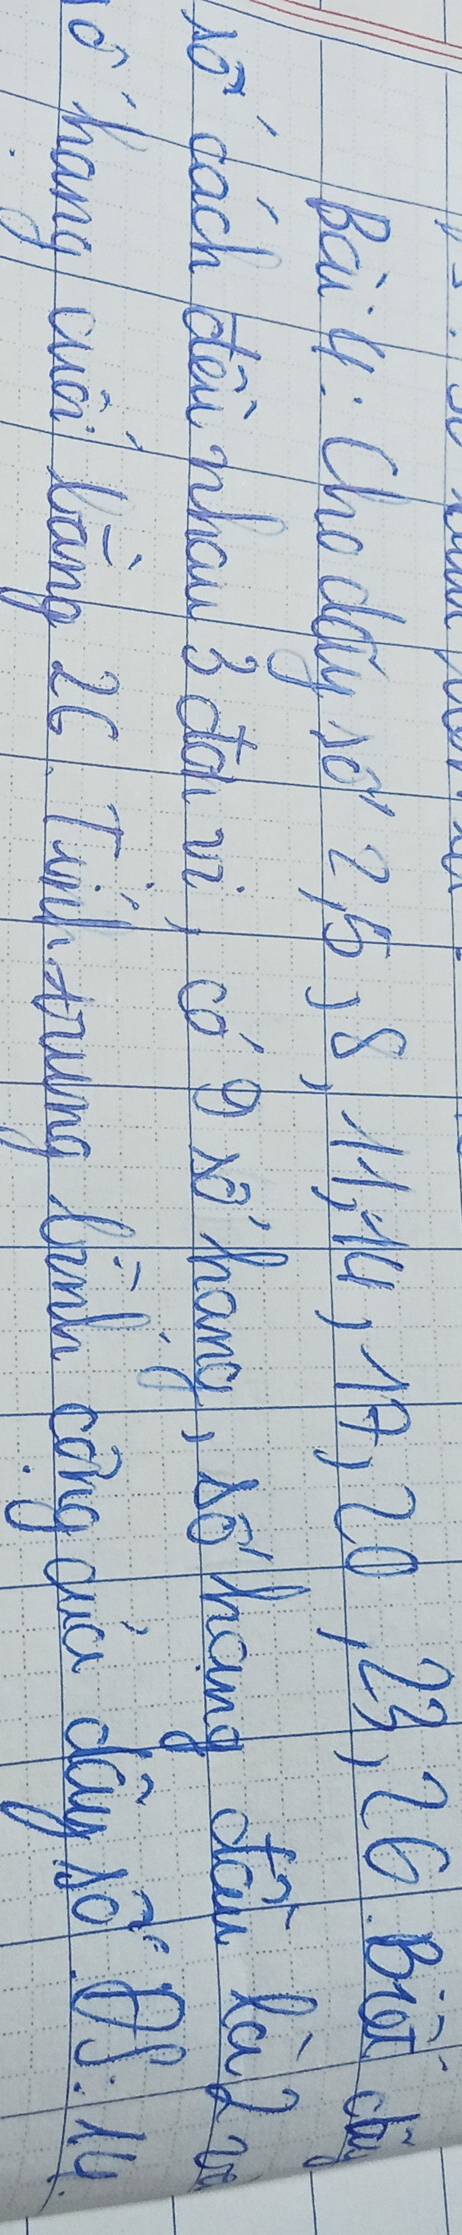 Bài 4: Cho dãy số 2, 5, 8, 11, 14, 17, 20, 23, 26. Biết dãy
số cách đều nhau 3 đơn vị, có 9 số hạng, số hạng đầu là 2 và
số hạng cuối bằng 26. Tính trung bình cộng của dãy số. ĐS: 14.